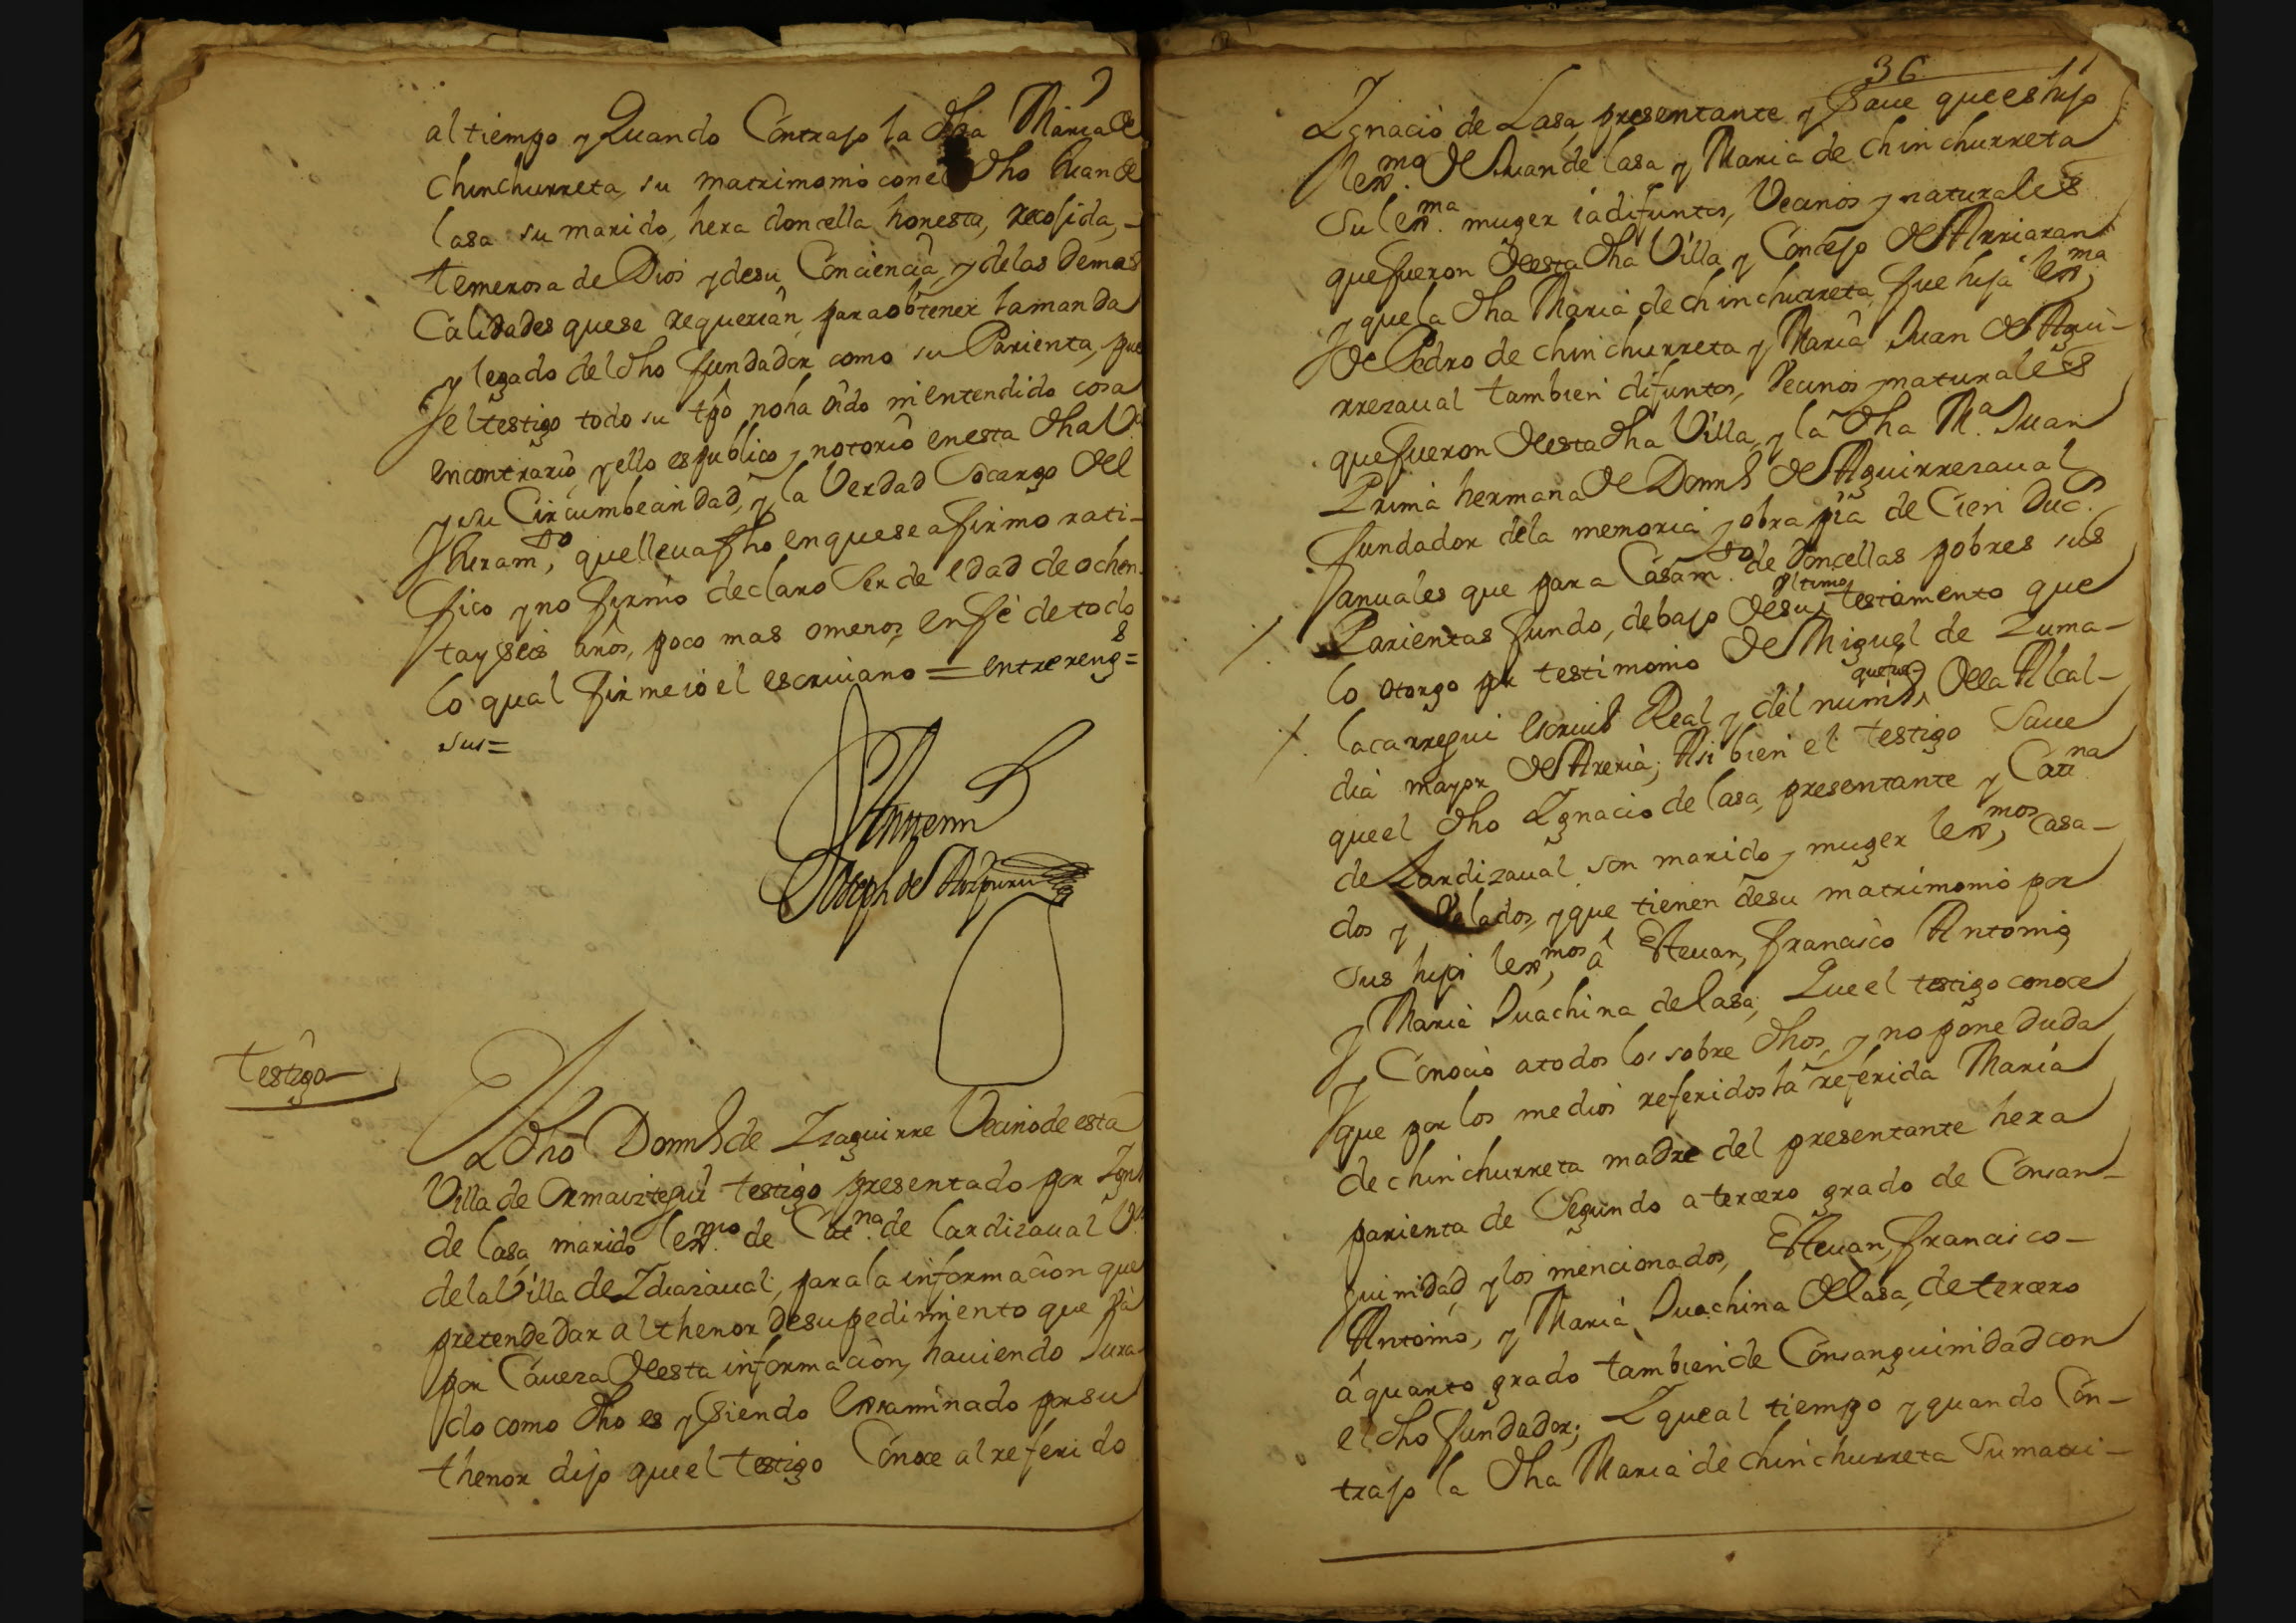 al tiempo y Quando Contrajo la dha Maria de
chinchurreta, su matrimonio con el dho Juan de
lasa su marido, hera doncella honesta, recojida,
temerosa de Dios y de su Conciencia, y de las demas
Calidades que se requerian para obtener la manda
y legado del dho fundador como su Parienta, que
el testigo todo su tpo no ha oido ni entendido cosa
en contrario, y ello es publico y notorio en esta dha Va
y su Circumbecindad, y la Verdad socargo del
Juram.to, que lleva fho en que se afirmo rati-
fico y no firmo declaro Ser de edad de ochen-
ta y seis años, poco mas o menos, en fe de todo
lo qual firme io el escriuano = entrereng.s =
sus =
Antemi
Joseph de
testigo
El dho Doms de Izaguirre Vecino de esta
Villa de Ormaiztegui testigo presentado por Ign.o
de lasa, marido lex.mo de Cat.na de lardizaual V.a
de la Villa de Idiazaual, para la informacion que
pretende dar al thenor de su pedimiento que ba
por Caueza desta informacion, hauiendo Jura-
do como dho es y siendo Exsaminado por su
thenor dijo que el testigo Conoce al referido
36
Ignacio de Lasa, presentante y saue que es hijo
lex.mo de Juan de lasa y Maria de chinchurreta
su lex.ma muger ia difuntos, Vecinos y naturales
que fueron desta dha Villa y Concejo de Arriaran
y que la dha Maria de chinchurreta, fue hija lex.ma
de Pedro de chinchurreta y Maria Juan de Agui-
rrezaual tambien difuntos, Vecinos y naturales
que fueron desta dha Villa, y la dha M.a Juan
Prima hermana de Doms de Aguirrezaual
fundador de la memoria y obra pia de Cien Duc.s
anuales que para Casam.to de Doncellas pobres sus
Parientas fundo, debajo de su vltimo testamento que
lo otorgo por testimonio de Miguel de Zuma-
lacarregui escriuo Real y del num.o que fue de la Alcal-
dia mayor de Areria; Asi bien el testigo saue
que el dho Ignacio de lasa, presentante y Cat.na
de Lardizaual son marido y muger lex.mos Casa-
dos y Velados, y que tienen de su matrimonio por
sus hijos lex.mos â Esteuan, francisco Antonio,
y Maria Juachina de lasa, Que el testigo conoce
y Conocio a todos los sobre dhos, y no pone duda
que por los medios referidos la referida Maria
de chinchurreta madre del presentante hera
parienta de Segundo a tercero grado de Consan-
guinidad y los mencionados, Esteuan, francisco
Antonio, y Maria Juachina de lasa, de tercero
â quarto grado tambien de Consanguinidad con
el dho fundador; I que al tiempo y quando Con-
trajo la dha Maria de chinchurreta su matri-